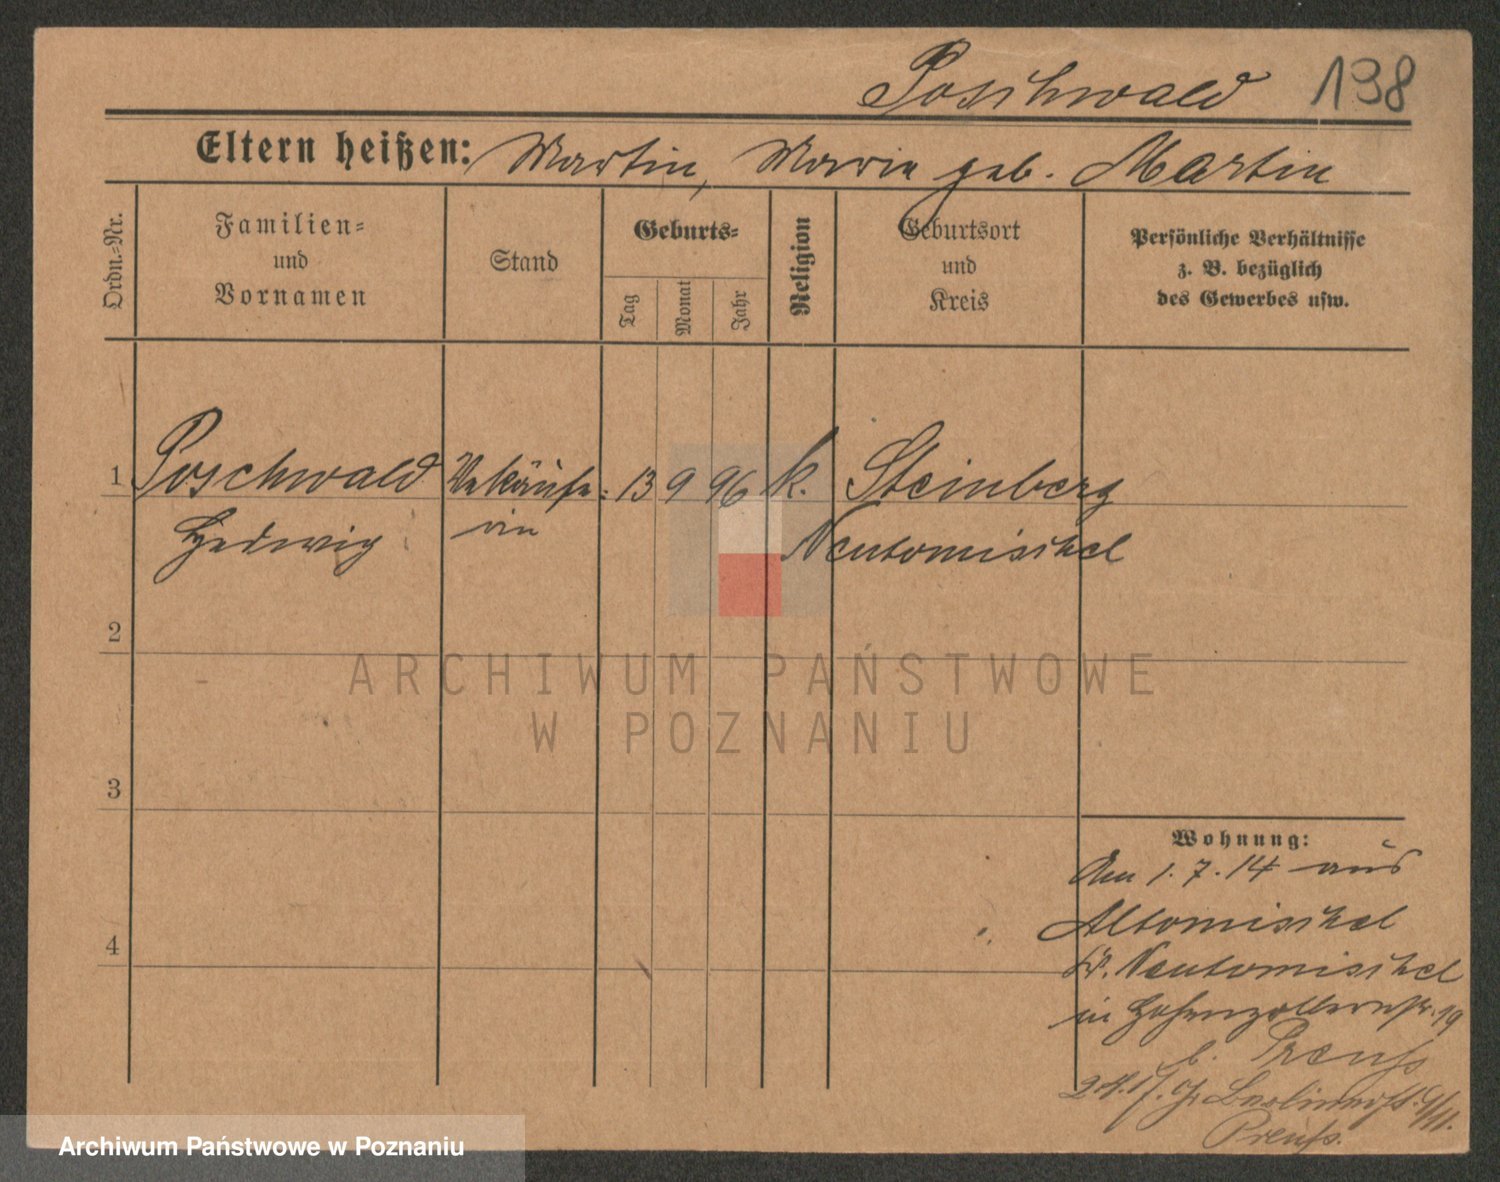 Poschwald 138
Eltern heißen: Martin, Maria geb. Martin
Ordn.-Nr.
Familien-
und
Vornamen
Stand
Geburts-
Tag
Monat
Jahr
Religion
Geburtsort
und
Kreis
Persönliche Verhältnisse
z. B. bezüglich
des Gewerbes usw.
1 Poschwald Verkäufe- 13 9 96 k. Steinberg
Hedwig rin Neutomischel
2
3
4
Wohnung:
Am 1.7.14 aus
Altomischel
Kr. Neutomischel
in Hohenzollernstr. 19
b. Preuss
Berlinerstr.
Preuss.
ARCHIWUM PAŃSTWOWE
W POZNANIU
Archiwum Państwowe w Poznaniu